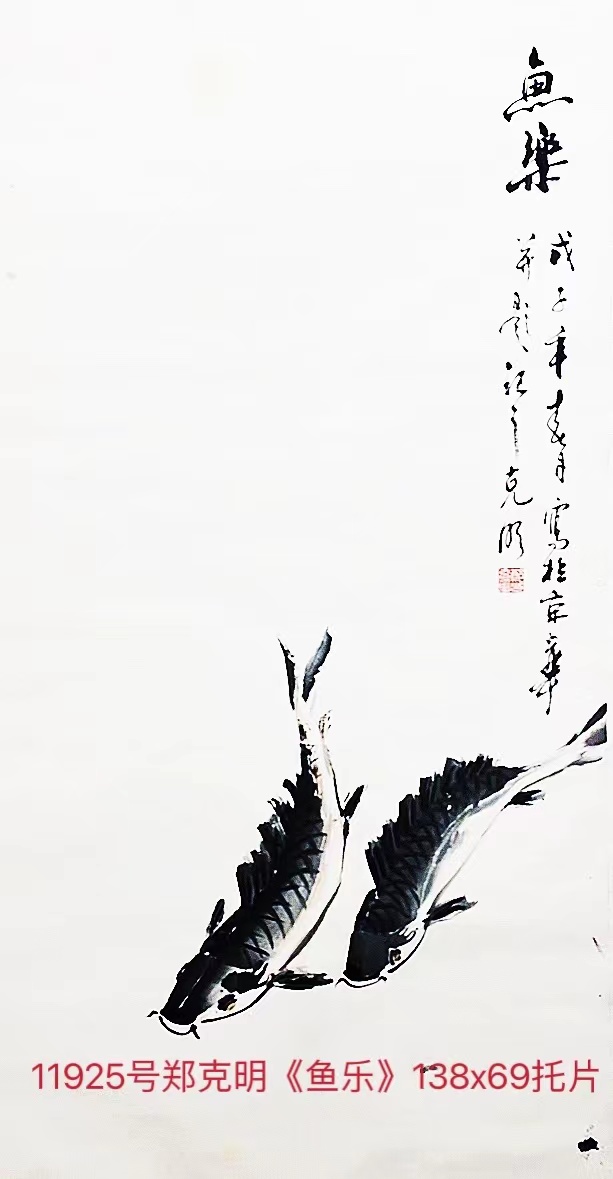 魚樂
戊子年春月寫於京華
并題記之克明
11925号郑克明《鱼乐》138x69托片